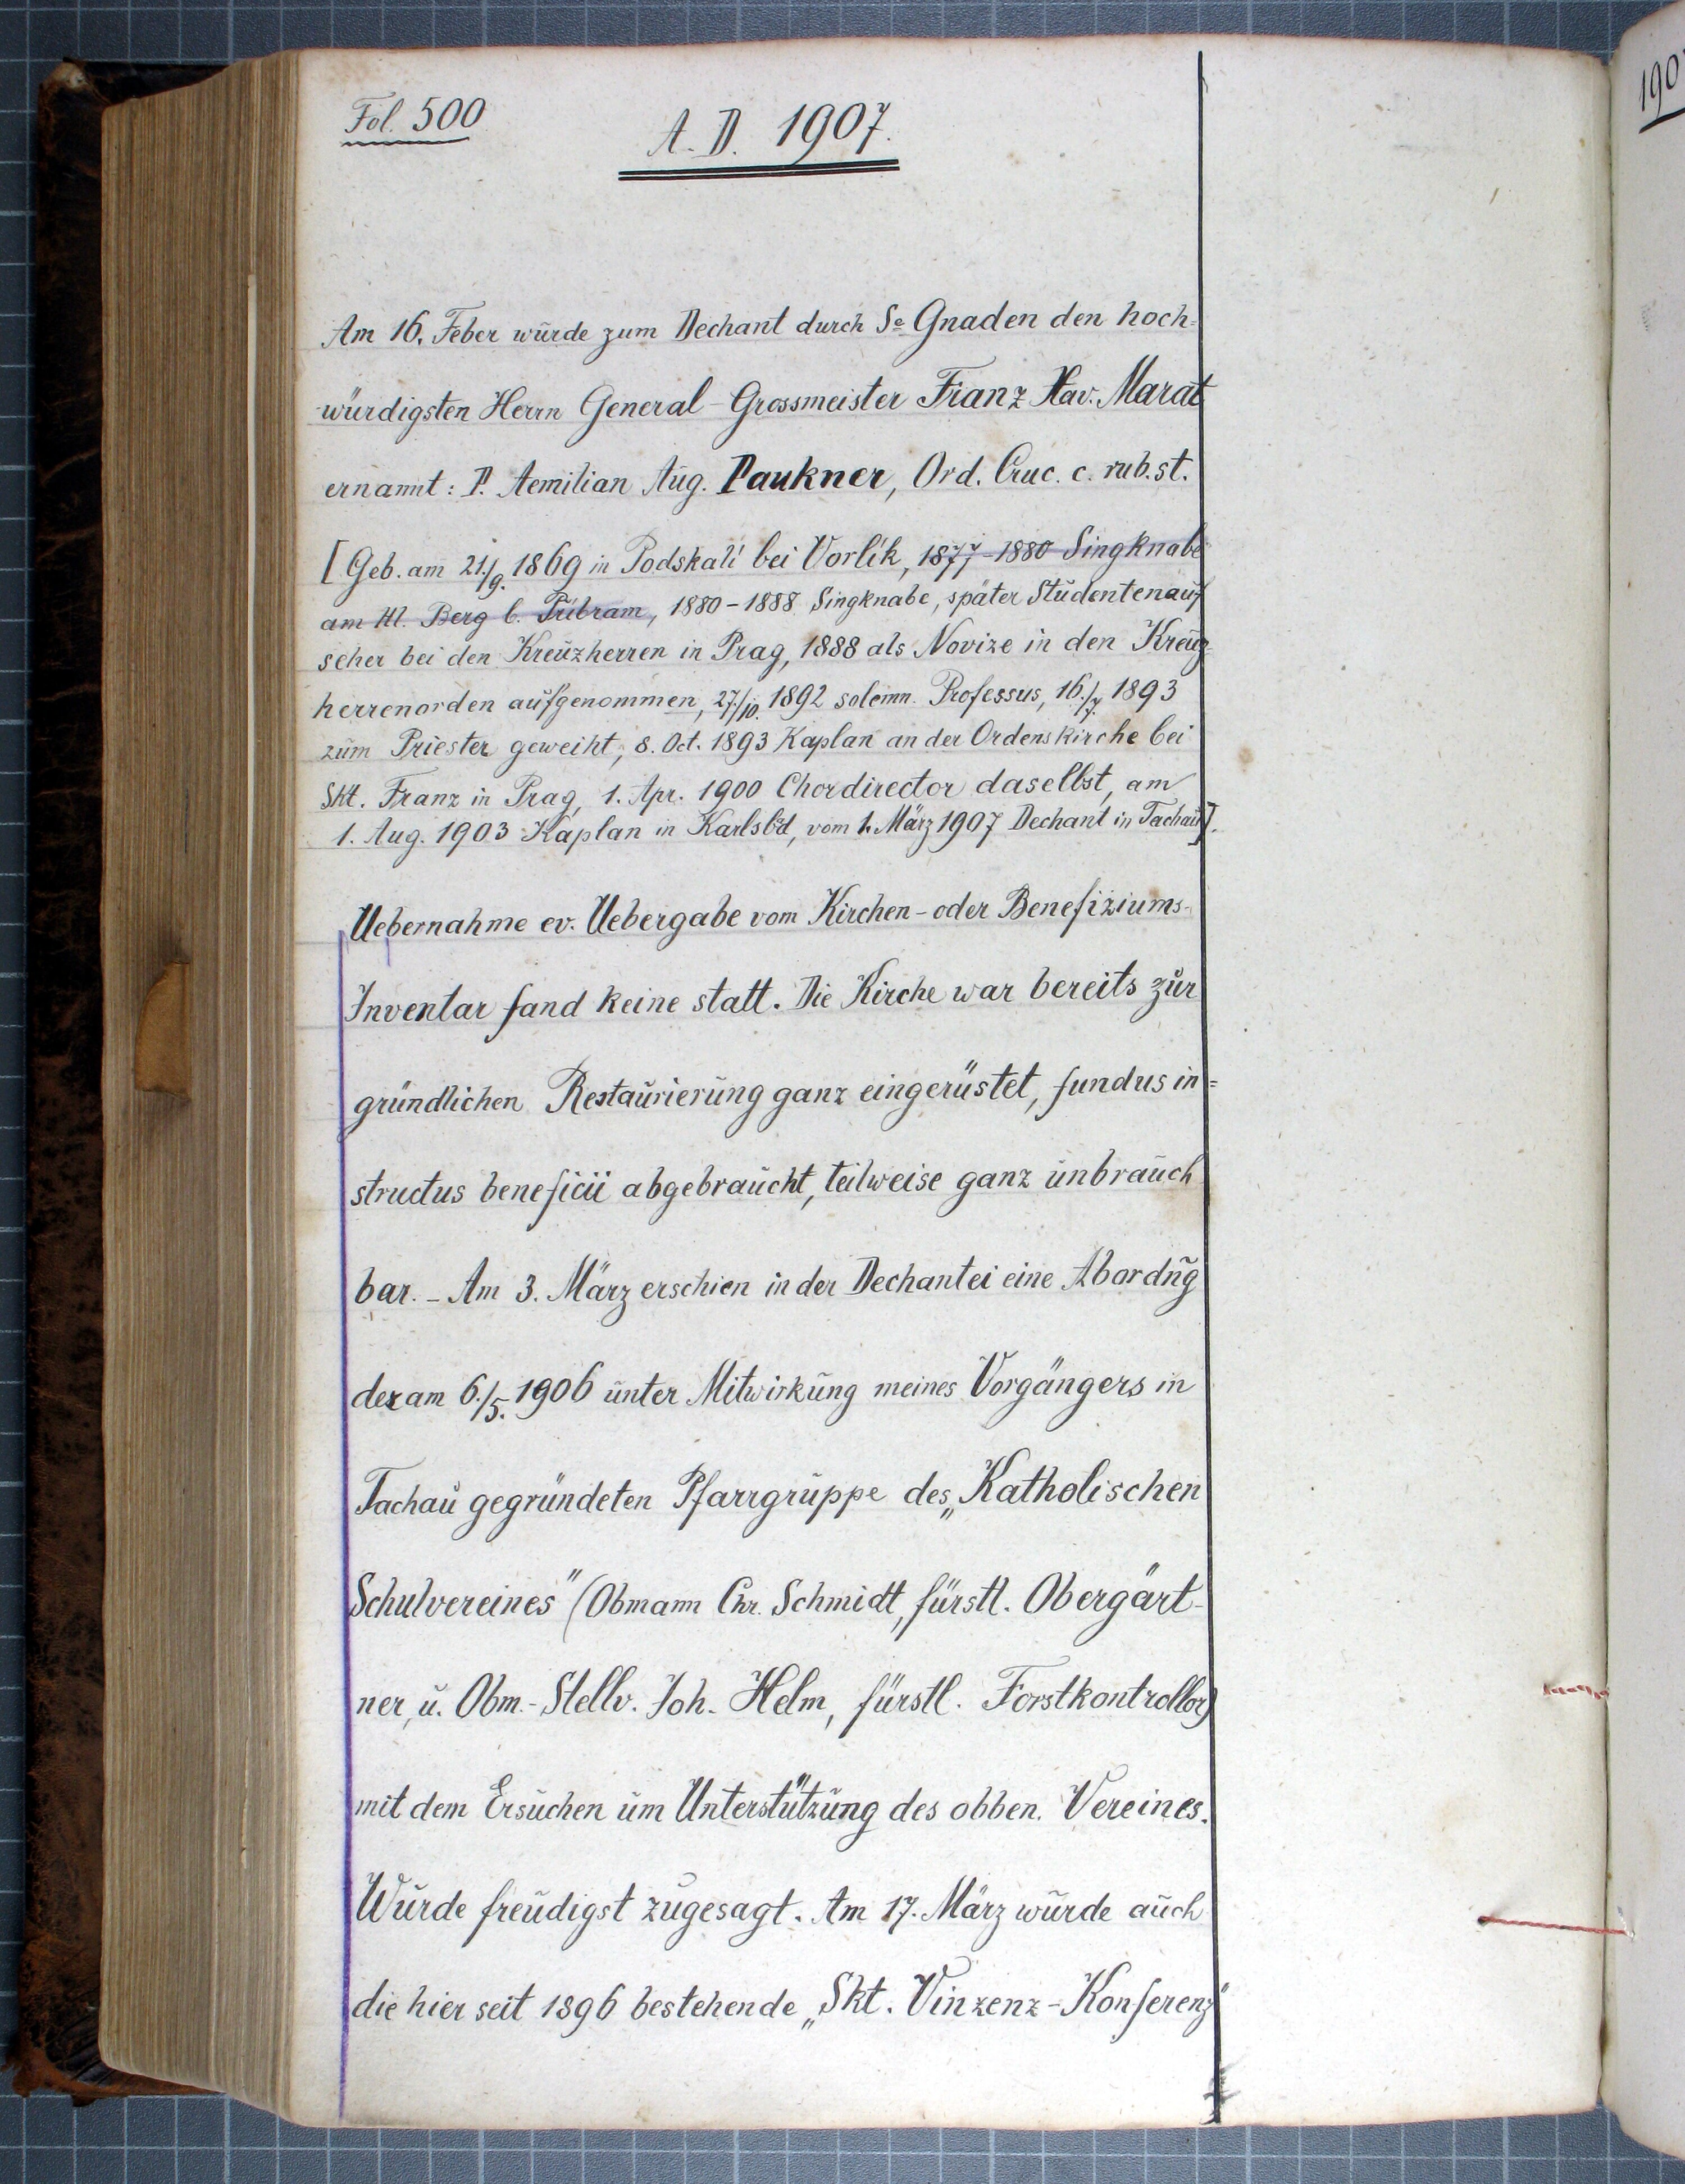 Fol. 500
A. D. 1907.
Am 16. Feber wurde zum Dechant durch Se Gnaden den hoch=
würdigsten Herrn General-Grossmeister Franz Xav. Marat
ernannt: P. Aemilian Aug. Paukner, Ord. Cruc. c. rub. st.
[Geb. am 21./9. 1869 in Podskalí bei Vorlík, 1877-1880 Singknabe
am Hl. Berg b. Příbram, 1880-1888 Singknabe, später Studentenauf
seher bei den Kreuzherren in Prag, 1888 als Novize in den Kreuz-
herrenorden aufgenommen, 27./10. 1892 solemn. Professus, 16./7. 1893
zum Priester geweiht, 8. Oct. 1893 Kaplan an der Ordenskirche bei
Skt. Franz in Prag, 1. Apr. 1900 Chordirector daselbst, am
1. Aug. 1903 Kaplan in Karlsbd, vom 1. März 1907 Dechant in Tachau].
Uebernahme ev. Uebergabe vom Kirchen- oder Benefiziums-
Inventar fand keine statt. Die Kirche war bereits zur
gründlichen Restaurierung ganz eingerüstet, fundus in=
structus beneficii abgebraucht, teilweise ganz unbrauch
bar. - Am 3. März erschien in der Dechantei eine Abordng
der am 6./5. 1906 unter Mitwirkung meines Vorgängers in
Tachau gegründeten Pfarrgruppe des „Katholischen
Schulvereines" (Obmann Chr. Schmidt, fürstl. Obergärt-
ner, u. Obm.-Stellv. Joh. Helm, fürstl. Forstkontrollor)
mit dem Ersuchen um Unterstützung des obben. Vereines.
Wurde freudigst zugesagt. Am 17. März wurde auch
die hier seit 1896 bestehende „Skt. Vinzenz-Konferenz"
190